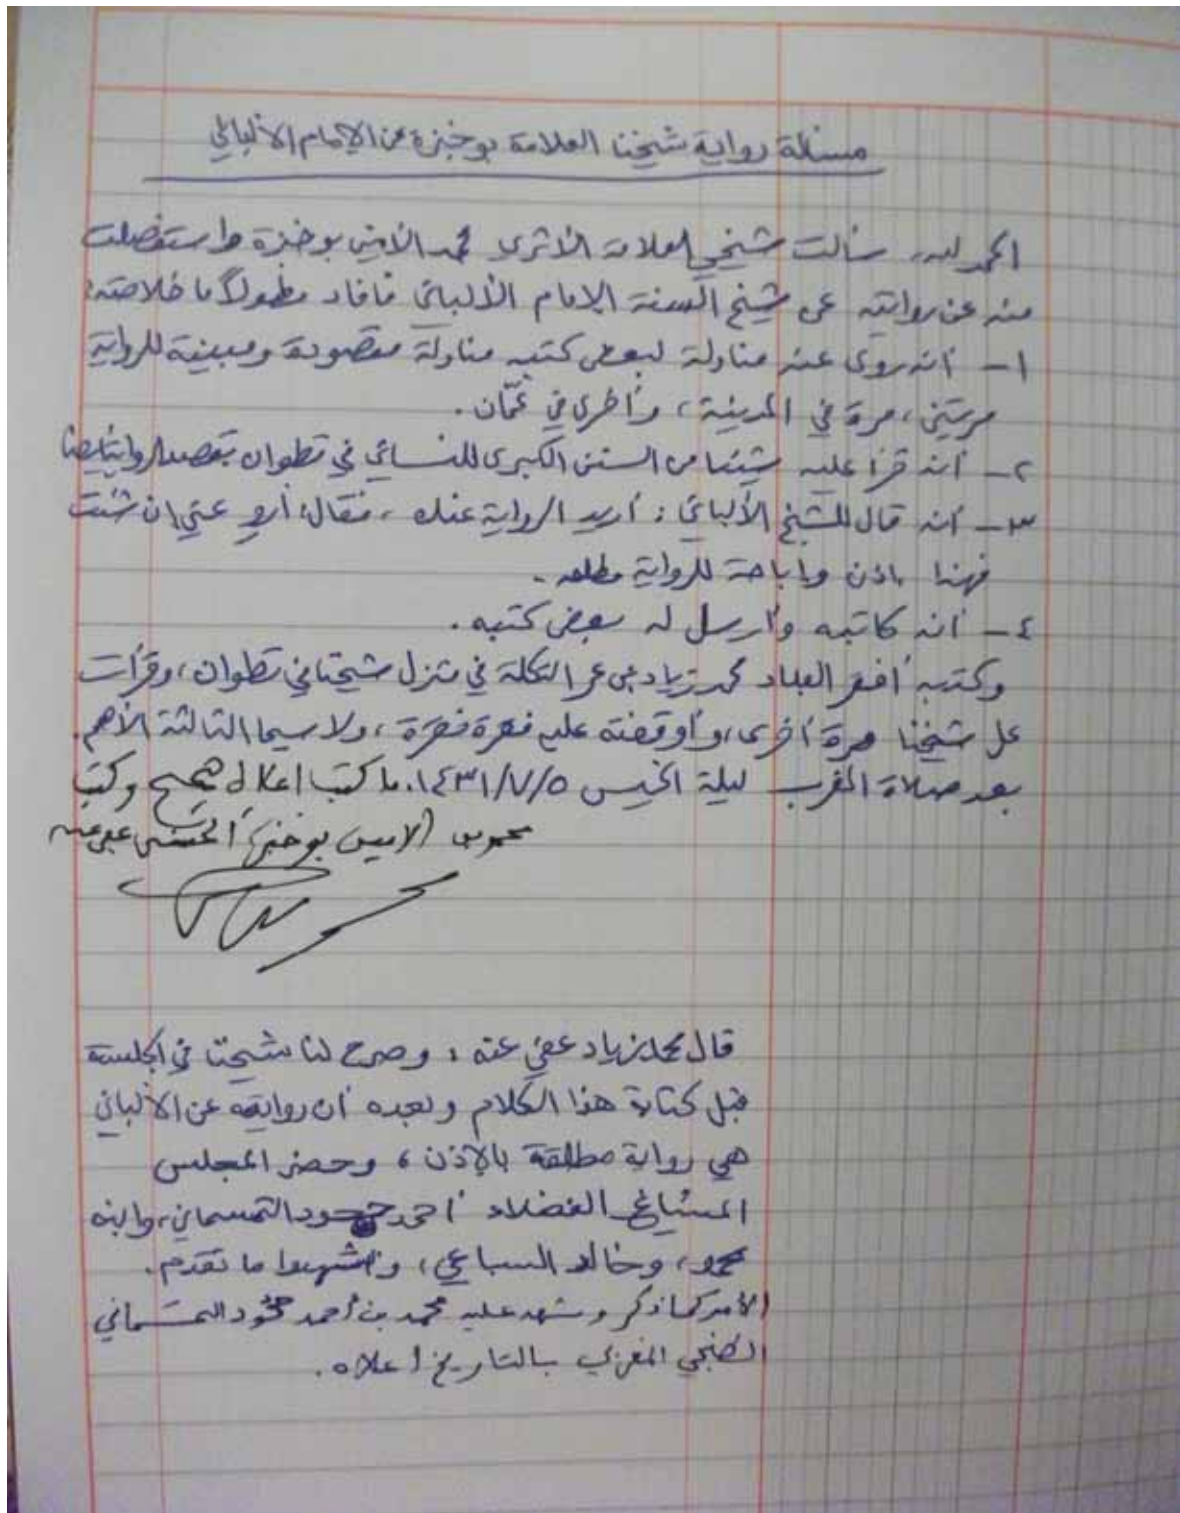 مسألة رواية شيخنا العلامة بوخبزة عن الإمام الألباني
الحمد لله، سألت شيخي العلامة الأثري محمد الأمين بوخبزة واستفصلت
منه عن روايته عن شيخ السنة الإمام الألباني فأفاد مطولاً ما خلاصته:
١- أنه روى عنه مناولة لبعض كتبه مناولة مقصودة ومبينة للرواية
مرتين، مرة في المدينة، وأخرى في عمّان.
٢- أنه قرأ عليه شيئا من السنن الكبرى للنسائي في تطوان بقصد الرواية أيضا
٣- أنه قال للشيخ الألباني: أريد الرواية عنك، فقال: اروِ عني إن شئت
فهذا إذن وإباحة للرواية مطلقة.
٤- أنه كاتبه وأرسل له بعض كتبه.
وكتبه أفقر العباد محمد زياد بن عمر التكلة في منزل شيخنا في تطوان، وقرأت
على شيخنا مرة أخرى، وأوقفته عليه فقرة فقرة، ولا سيما الثالثة الأهم.
بعد صلاة المغرب ليلة الخميس ١٤٣١/٧/٥. ما كتب أعلاه صحيح وكتب
محمد الأمين بوخبزة الحسني عفي عنه
قال محمد زياد عفي عنه: وصرح لنا شيخنا في الجلسة
قبل كتابة هذا الكلام وبعده أن روايته عن الألباني
هي رواية مطلقة بالإذن، وحضر المجلس
المشايخ الفضلاء أحمد حمود التمسماني، وابنه
محمد، وخالد السباعي، وشهدوا ما تقدم.
الأمر كما ذكر وشهد عليه محمد بن أحمد حمود التمسماني
الطنجي المغربي بالتاريخ أعلاه.